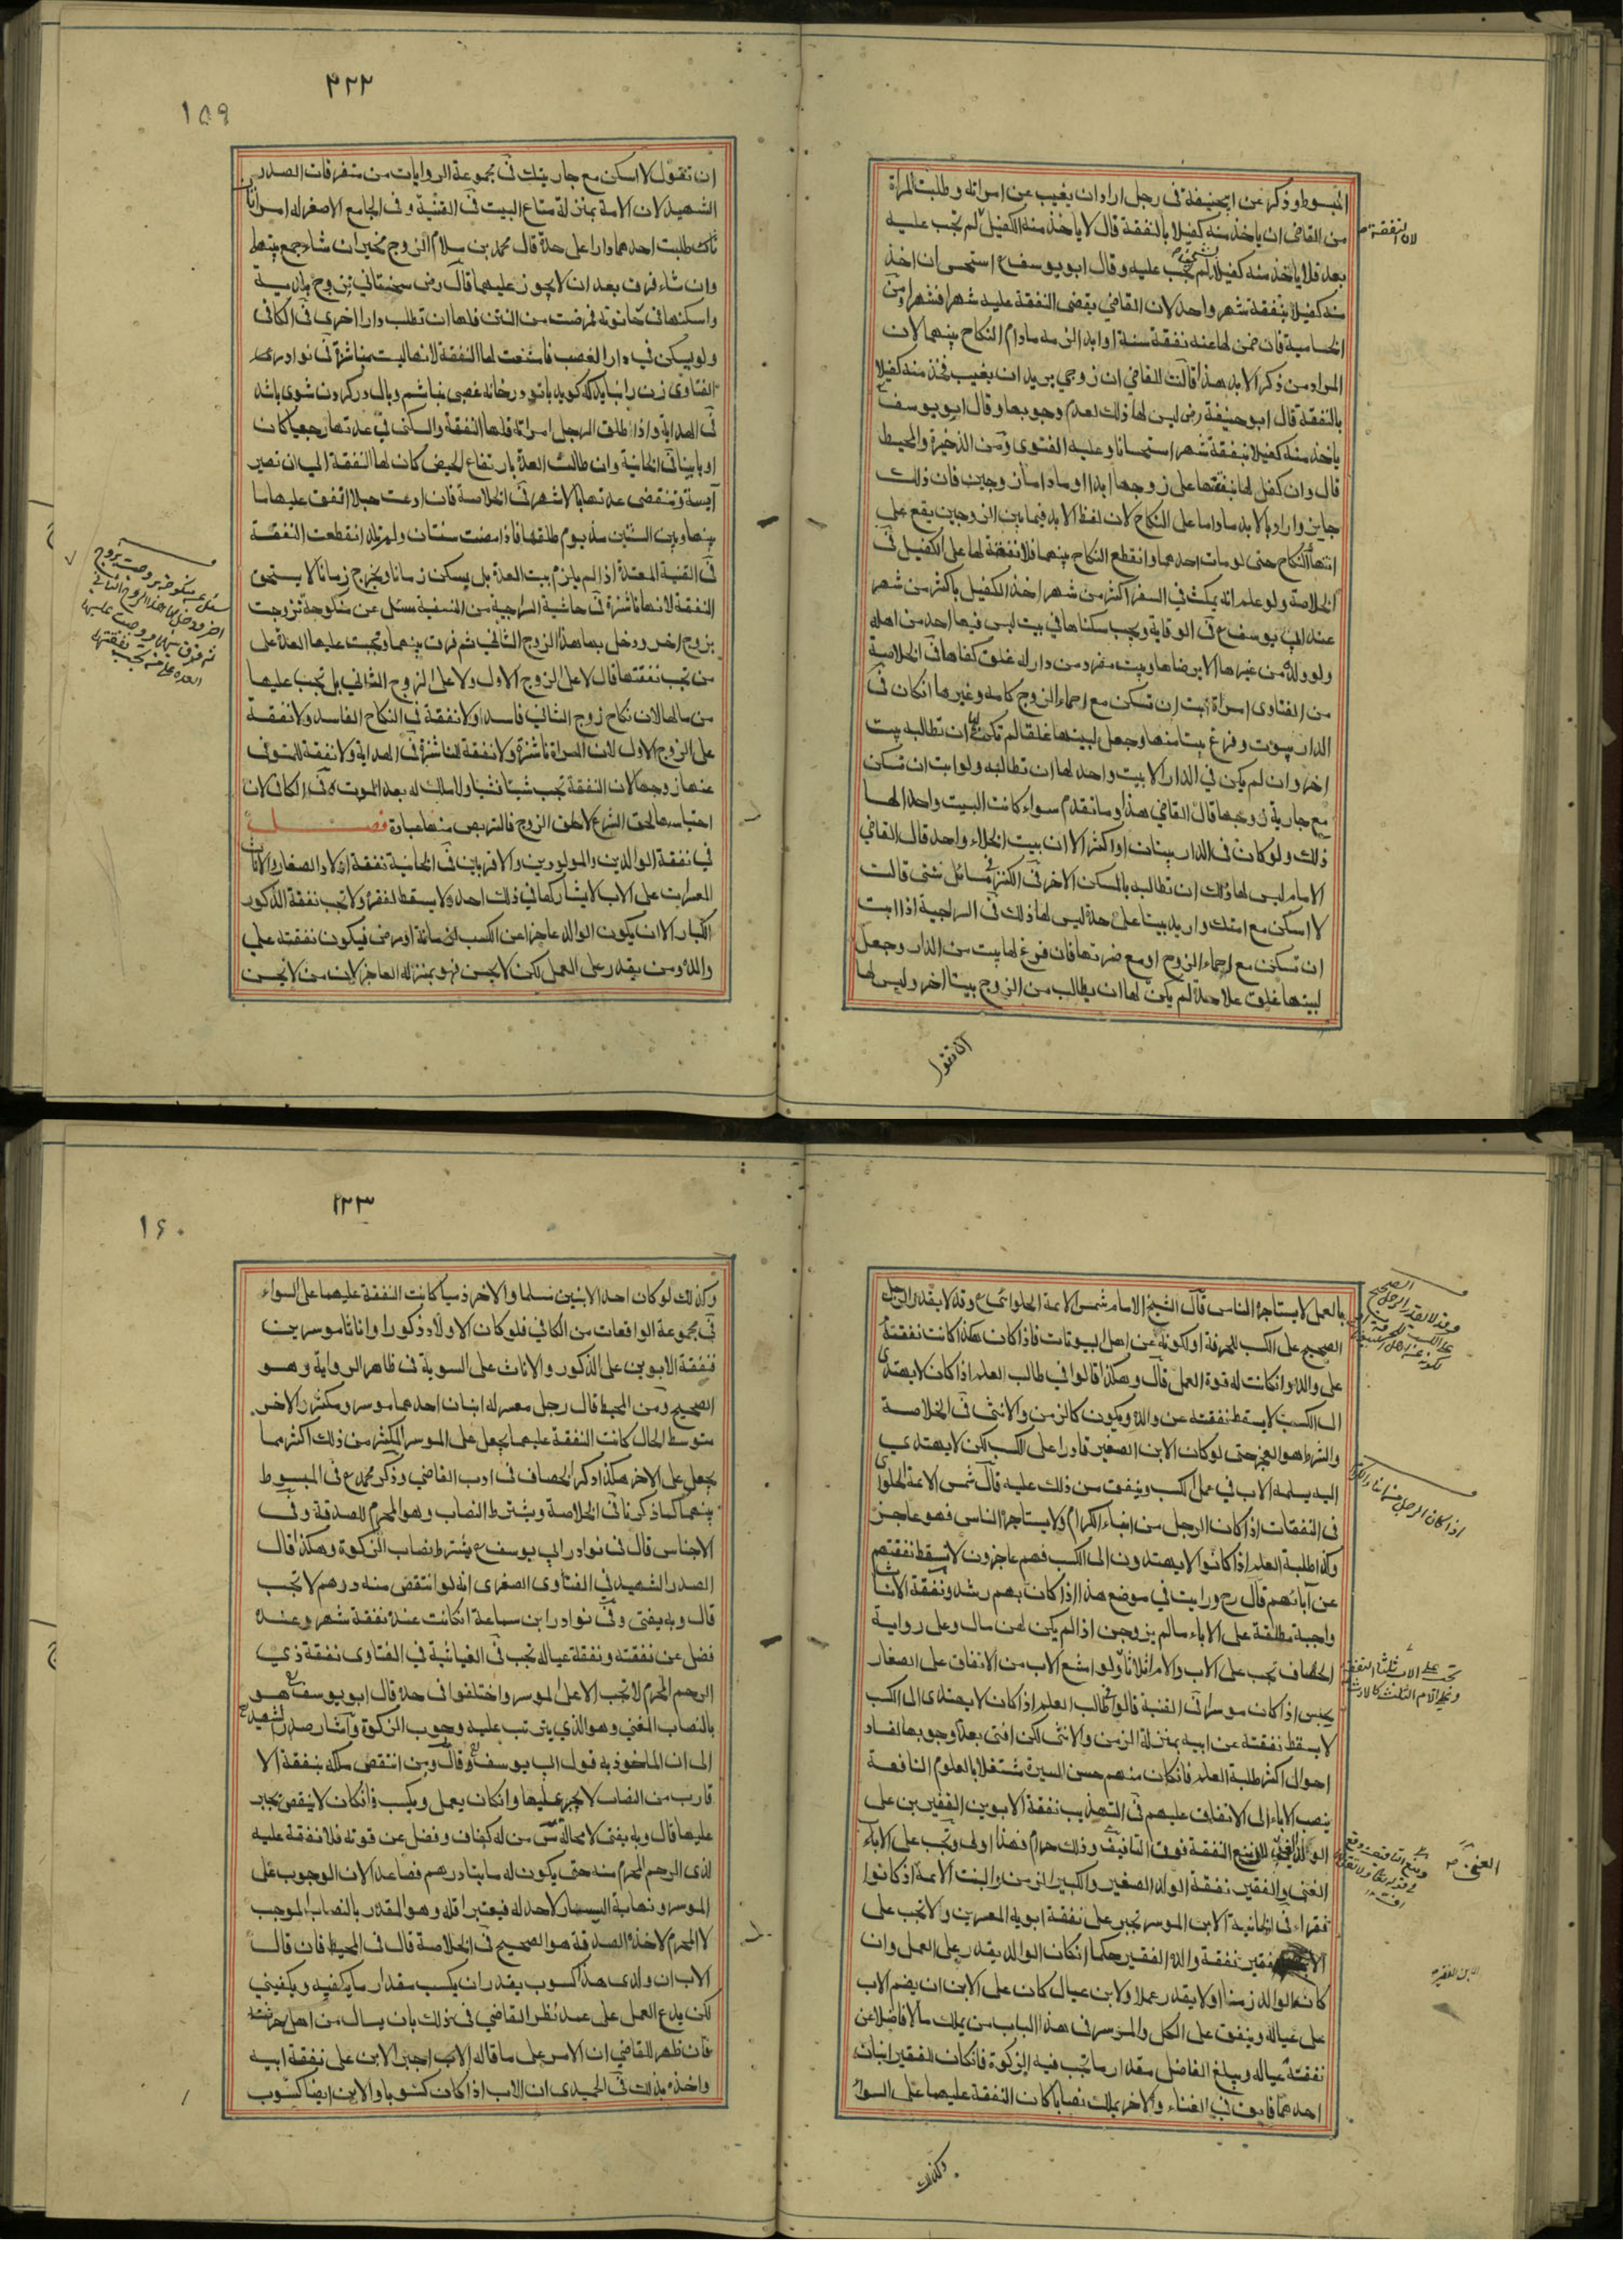 المبسوط وذكر عن ابيحنيفة فى رجل اراد ان يغيب عن امراته وطلبت المراة
من القاضى ان ياخذ منه كفيلا بالنفقة قال لا ياخذ منه الكفيل لم تجب عليه
بعد فلا ياخذ منه كفيلا لم تجب عليه وقال ابو يوسف ع استحسن ان اخذ
منه كفيلا بنفقة شهر واحد لان القاضى يقضى النفقة عليه شهرا فشهرا ومن
الحسامية فان ضمن لها عنه نفقة سنة او ابد الزمه مادام النكاح بينهما لان
المراد من ذكر الابد هذا قالت للقاضى ان زوجي يريد ان يغيب فخذ منه كفيلا
بالنفقة قال ابو حنيفة رض ليس لها ذلك لعدم وجوبها وقال ابو يوسف
ياخذ منه كفيلا بنفقة شهر استحسانا وعليه الفتوى ومن الذخيرة والمحيط
قال وان كفل لها بنفقتها على زوجها ابدا او مادامتا زوجين فان ذلك
جايز واراد بالابد ماداما على النكاح لان لفظ الابد فيما بين الزوجين يقع على
انتهاء النكاح حتى لو مات احدهما وانقطع النكاح بينهما فلا نفقة لها على الكفيل فى
الخلاصة ولو علم انه يمكث في السفر اكثر من شهر اخذ الكفيل باكثر من شهر
عند ابي يوسف ع فى الوقاية ويجب سكناها في بيت ليس فيها احد من اهله
ولو ولده من غيرها الا برضاها وبيت مفرد من دار له غلق كفاها فى الخلاصة
من الفتاوى امراة ابت ان تسكن مع احماء الزوج كامه وغيرها ان كان فى
الدار بيوت وفرغ بيتا منها وجعل لبيتها غلقا لم تكن لها ان تطالبه ببيت
اخر وان لم يكن في الدار الا بيت واحد لها ان تطالبه ولو ابت ان تسكن
مع جارية زوجها قال القاضي هذا وما تقدم سواء كانت البيت واحدا لها
ذلك ولو كان فى الدار بيتان او اكثر الا ان بيت الخلاء واحد قال القاضى
الامام ليس لها ذلك ان تطالبه بالمسكن الاخر فى الكنز فى مسائل شتى قالت
لا اسكن مع امتك واريد بيتا على حدة ليس لها ذلك فى السراجية اذا ابت
ان تسكن مع احماء الزوج او مع ضرتها فان فرغ لها بيت من الدار وجعل
لبيتها غلق علاحدة لم يكن لها ان يطالب من الزوج بيتا اخر وليس لها
ان تقول
لان النفقة
٣٢٢
١٥٩
ان تقول لا اسكن مع جاريتك فى مجموعة الروايات من متفرقات الصدر
الشهيد لان الامة بمنزلة متاع البيت فى القنية وفى الجامع الاصغر له امراتان
طلبت احدهما دارا على حدة قال محمد بن سلام الزوج مخير ان شاء جمع بينهما
وان شاء فرق بعد ان لا يجوز عليهما قال رض سجستاني تزوج بلدية
واسكنها فى حانوته فمرضت من النتن فلها ان تطلب دارا اخرى فى الكافى
ولو يسكن في دار الغصب فامتنعت لها النفقة لانها ليست بناشزة فى نوادر
الفتاوى زن را نبايد كه كويد با تو در خانه غصبى نباشم وبال در كردن شوى باشد
فى الهداية واذا طلق الرجل امراته فلها النفقة والسكنى في عدتها رجعيا كان
او باينا فى الخانية وان طالت العدة بارتفاع الحيض كان لها النفقة الي ان تصير
آيسة وتنقضى عدتها بالاشهر فى الخلاصة فان ادعت حبلا انفق عليها ما
بينها وبين السنتين منذ يوم طلقها فاذا مضت سنتان ولم تلد انقطعت النفقة
فى القنية المعتدة اذا لم يلزم بيت العدة بل يسكن زمانا ويخرج زمانا لا يستحق
النفقة لانها ناشزة فى حاشية السراجية من النسفية سئل عن منكوحة تزوجت
بزوج اخر ودخل بها هذا الزوج الثاني ثم فرق بينهما وتجب عليها العدة على
من تجب نفقتها قال لا على الزوج الاول ولا على الزوج الثاني بل تجب عليها
من مالها لان نكاح زوج الثاني فاسد او لا نفقة فى النكاح الفاسد ولا نفقة
على الزوج الاول لان المراة ناشزة ولا نفقة للناشزة فى الهداية ولا نفقة للمتوفى
عنها زوجها لان النفقة تجب شيئا فشيئا ولا ملك له بعد الموت فى الكافى لان
احتباسها لحق الشرع لا لحق الزوج فالتربص منها عبادة فصل
في نفقة الوالدين والمولودين والاقربين فى الخانية نفقة اولاد الصغار والاناث
المعسرات على الاب لا يشاركها في ذلك احد ولا يسقط لفقره ولا تجب نفقة الذكور
الكبار الا ان يكون الوالد عاجزا عن الكسب لزمانة او مرض فيكون نفقته علي
والده ومن يقدر على العمل لكن لا يحسن فهو بمنزلة العاجز لان من لا يحسن
بالعمل لا يستاجره الناس قال الشيخ الامام شمس الائمة الحلوائى ع وقد لا يقدر الرجل
الصحيح على الكسب لحرفة او لكونه من اهل البيوتات فاذا كان هكذا كانت نفقته
على والده وان كانت له قوة العمل قال وهكذا قالوا في طالب العلم اذا كان لا يهتدى
الى الكسب لا يسقط نفقته عن والده ويكون كالزمن والانثى فى الخلاصة
والشرط هو العجز حتى لو كان الابن الصغير قادرا على الكسب لكن لا يهتدي
اليه يسلمه الاب في عمل الكسب وينفق من ذلك عليه قال شمس الائمة الحلوائى
فى النفقات اذا كان الرجل من ابناء الكرام ولا يستاجره الناس فهو عاجز
وكذا طلبة العلم اذا كانوا لا يهتدون الى الكسب فهم عاجزون لا تسقط نفقتهم
عن آبائهم قال رح ورايت في موضع هذا اذا كان بهم رشد ونفقة الاناث
واجبة مطلقة على الاباء ما لم يزوجن اذا لم يكن لهن مال وعلى رواية
الخصاف تجب على الاب والام اثلاثا ولو امتنع الاب من الانفاق على الصغار
يحبس اذا كان موسرا فى القنية قالوا طالب العلم اذا كان لا يهتدى الى الكسب
لا يسقط نفقته عن ابيه بمنزلة الزمن والانثى لكن افتى بعدم وجوبها لفساد
احوال اكثر طلبة العلم فان كان منهم حسن السيرة مشتغلا بالعلوم النافعة
يجب الاباء على الانفاق عليهم فى التهذيب نفقة الابوين الفقيرين على
الولد الغنى لان منع النفقة فوق التأفيف وذلك حرام فهذا اولى وتجب على الاباء
الغنى والفقير نفقة الولد الصغير والكبير الزمن والبنت الائمة اذا كانوا
فقراء فى الخانية الابن الموسر يجبر على نفقة ابويه المعسرين ولا تجب على
الابن الفقير نفقة والده الفقير حكما ان كان الوالد يقدر على العمل وان
كان الوالد زمنا او لا يقدر عملا ولابن عيال كان على الابن ان يضم الاب
على عياله وينفق على الكل والموسر فى هذا الباب من يملك مالا فاضلا عن
نفقة عياله ويبلغ الفاضل مقدار ما تجب فيه الزكوة فان كان للفقير ابنان
احدهما فايق في الغناء والاخر يملك نصابا كان النفقة عليهما على السواء
وكذلك
اذا كان الرجل من ابناء الكرام
تجب على الاب ثلثا النفقة
وعلى الام الثلث كالارث
الغنى
الابن الفقير
١٢٣
١٦٠
وكذلك لو كان احد الابنين مسلما والاخر ذميا كانت النفقة عليهما على السواء
فى مجموعة الواقعات من الكافي فلو كان الاولاد ذكورا واناثا موسرين
فنفقة الابوين على الذكور والاناث على السوية فى ظاهر الرواية وهو
الصحيح ومن المحيط قال رجل معسر له ابنان احدهما موسر ومكثر والاخر
متوسط الحال كانت النفقة عليهما يجعل على الموسر المكثر من ذلك اكثر مما
يجعل على الاخر هكذا ذكر الخصاف فى ادب القاضي وذكر محمد ع فى المبسوط
بينهما كما ذكرنا فى الخلاصة ويشترط النصاب وهو المحرم للصدقة وفى
الاجناس قال فى نوادر ابي يوسف ع يشترط نصاب الزكوة وهكذا قال
الصدر الشهيد في الفتاوى الصغرى انه لو انتقص منه درهم لا تجب
قال وبه يفتى وفى نوادر ابن سماعة ان كانت عنده نفقة شهر وعنده
فضل عن نفقته ونفقة عياله تجب فى الغياثية في الفتاوى نفقة ذي
الرحم المحرم لا تجب الا على الموسر واختلفوا فى حده قال ابو يوسف ع هو
بالنصاب المغني وهو الذي يترتب عليه وجوب الزكوة واشار صدر الشهيد
الى ان الماخوذ به قول ابي يوسف ع وقال ومن انتقص ملكه بنفقة الا
قارب من النصاب لا يجبر عليها وان كان يعمل ويكسب وان كان لا ينقص يجبر
عليها قال وبه يفتى لا محالة من له كفاف وفضل عن قوته فلا نفقة عليه
لذى الرحم المحرم منه حتى يكون له مايتا درهم فصاعدا لان الوجوب على
الموسر ونهاية اليسار لا حد له فيعتبر اقله وهو المقدر بالنصاب الموجب
لا المحرم لاخذ الصدقة هو الصحيح فى الخلاصة قال فى المحيط فان قال
الاب ان ولدى هذا كسوب يقدر ان يكسب مقدار ما يكفيه ويكفيني
لكن يدع العمل على عمد نظر القاضي في ذلك بان يسال من اهل حرفته
فان ظهر للقاضي ان الامر على ما قاله الاب اجبر الابن على نفقة ابيه
واخذه بذلك فى الحميدى ان الاب اذا كان كسوبا والابن ايضا كسوب